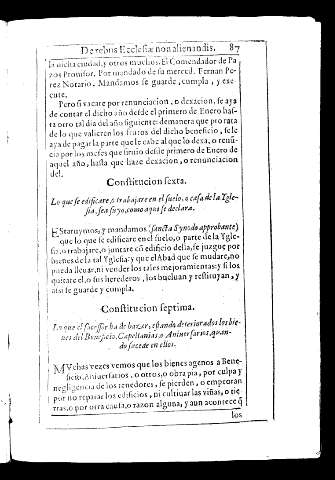 De rebus Ecclesiæ non alienandis. 87
la dicha ciudad, y otros muchos. El Comendador de Pa
zos Prouisor. Por mandado de su merced. Fernan Pe
rez Notario. Mandamos se guarde, cumpla, y exe-
cute.
Pero si vacare por renunciacion, o dexacion, se aya
de contar el dicho año desde el primero de Enero has-
ta otro tal dia del año siguiente: demanera que pro rata
de lo que valieren los frutos del dicho beneficio, se le
aya de pagar la parte que le cabe al que lo dexa, o renū
cia por los meses que siruio desde primero de Enero de
aquel año, hasta que haze dexacion, o renunciacion
del.
Constitucion sexta.
Lo que se edificare, o trabajare en el suelo, o casa de la Ygle
sia, sea suyo, como aqui se declara.
EStatuymos, y mandamos (sancta Synodo approbante)
que lo que se edificare en el suelo, o parte de la Ygle
sia, o trabajare, o juntare cō edificio della, se juzgue por
bienes de la tal Yglesia: y el Abad que se mudare, no
pueda lleuar, ni vender los tales mejoramientos: y si los
quitare el, o sus herederos, los bueluan y restituyan, y
assi se guarde y cumpla.
Constitucion septima.
Lo que el sucessor ha de hazer, estando deteriorados los bie
nes del Beneficio, Capellanias o Aniuersarios, quan-
do sucede en ellos.
MVchas vezes vemos que los bienes agenos a Bene-
ficio, Aniuersarios, o otros, o obra pia, por culpa y
negligencia de los tenedores, se pierden, o empeoran
por no reparar los edificios, ni cultiuar las viñas, o tie
rras, o por otra causa, o razon alguna, y aun acontece q̄
los